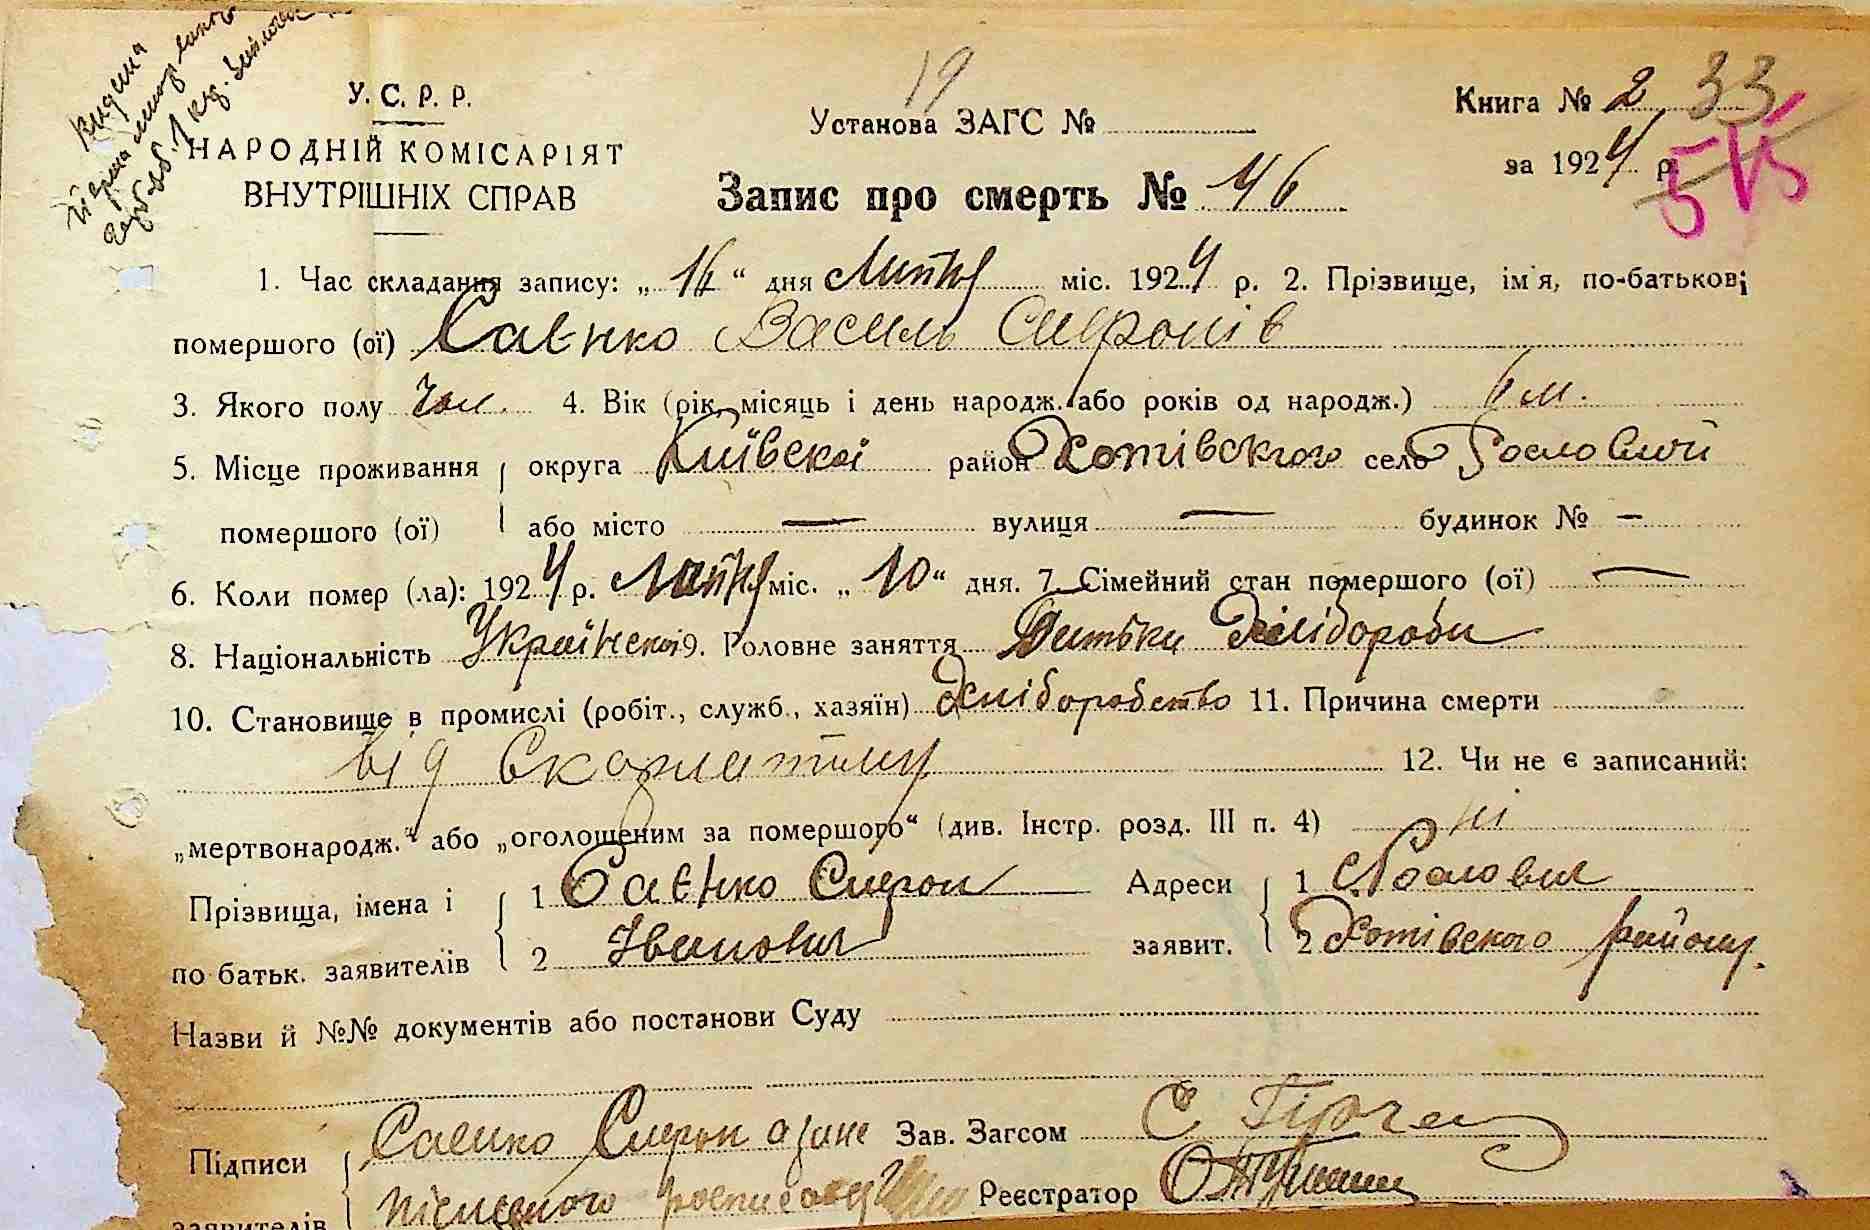 У.С.Р.Р.
НАРОДНІЙ КОМІСАРІЯТ
ВНУТРІШНІХ СПРАВ
19
Установа ЗАГС №
Книга № 2 33
за 1924 р. 515
Запис про смерть № 46
1. Час складання запису: „ 14 “ дня Липня міс. 1924 р. 2. Прізвище, ім'я, по-батькові
помершого (ої) Саєнко Василь
3. Якого полу Чол. 4. Вік (рік, місяць і день народж. або років од народж.) 6 м.
5. Місце проживання округа Київскої район Хотівского село Рославичи
помершого (ої) або місто — вулиця — будинок № —
6. Коли помер (ла): 1924 р. Липня міс. „ 10 “ дня. 7. Сімейний стан помершого (ої) —
8. Національність Українскої 9. Головне заняття Батьки Хлібороби
10. Становище в промислі (робіт., служб., хазяїн) Хліборобство 11. Причина смерти
від Скарлатину 12. Чи не є записаний:
„мертвонародж.“ або „оголошеним за помершого“ (див. Інстр. розд. III п. 4) ні
Прізвища, імена і 1 Саєнко Адреси 1 с. Рославичи
по батьк. заявителів 2 Іванович заявит. 2 Хотівского району.
Назви й №№ документів або постанови Суду
Підписи Саєнко Зав. Загсом С.
заявителів Реєстратор